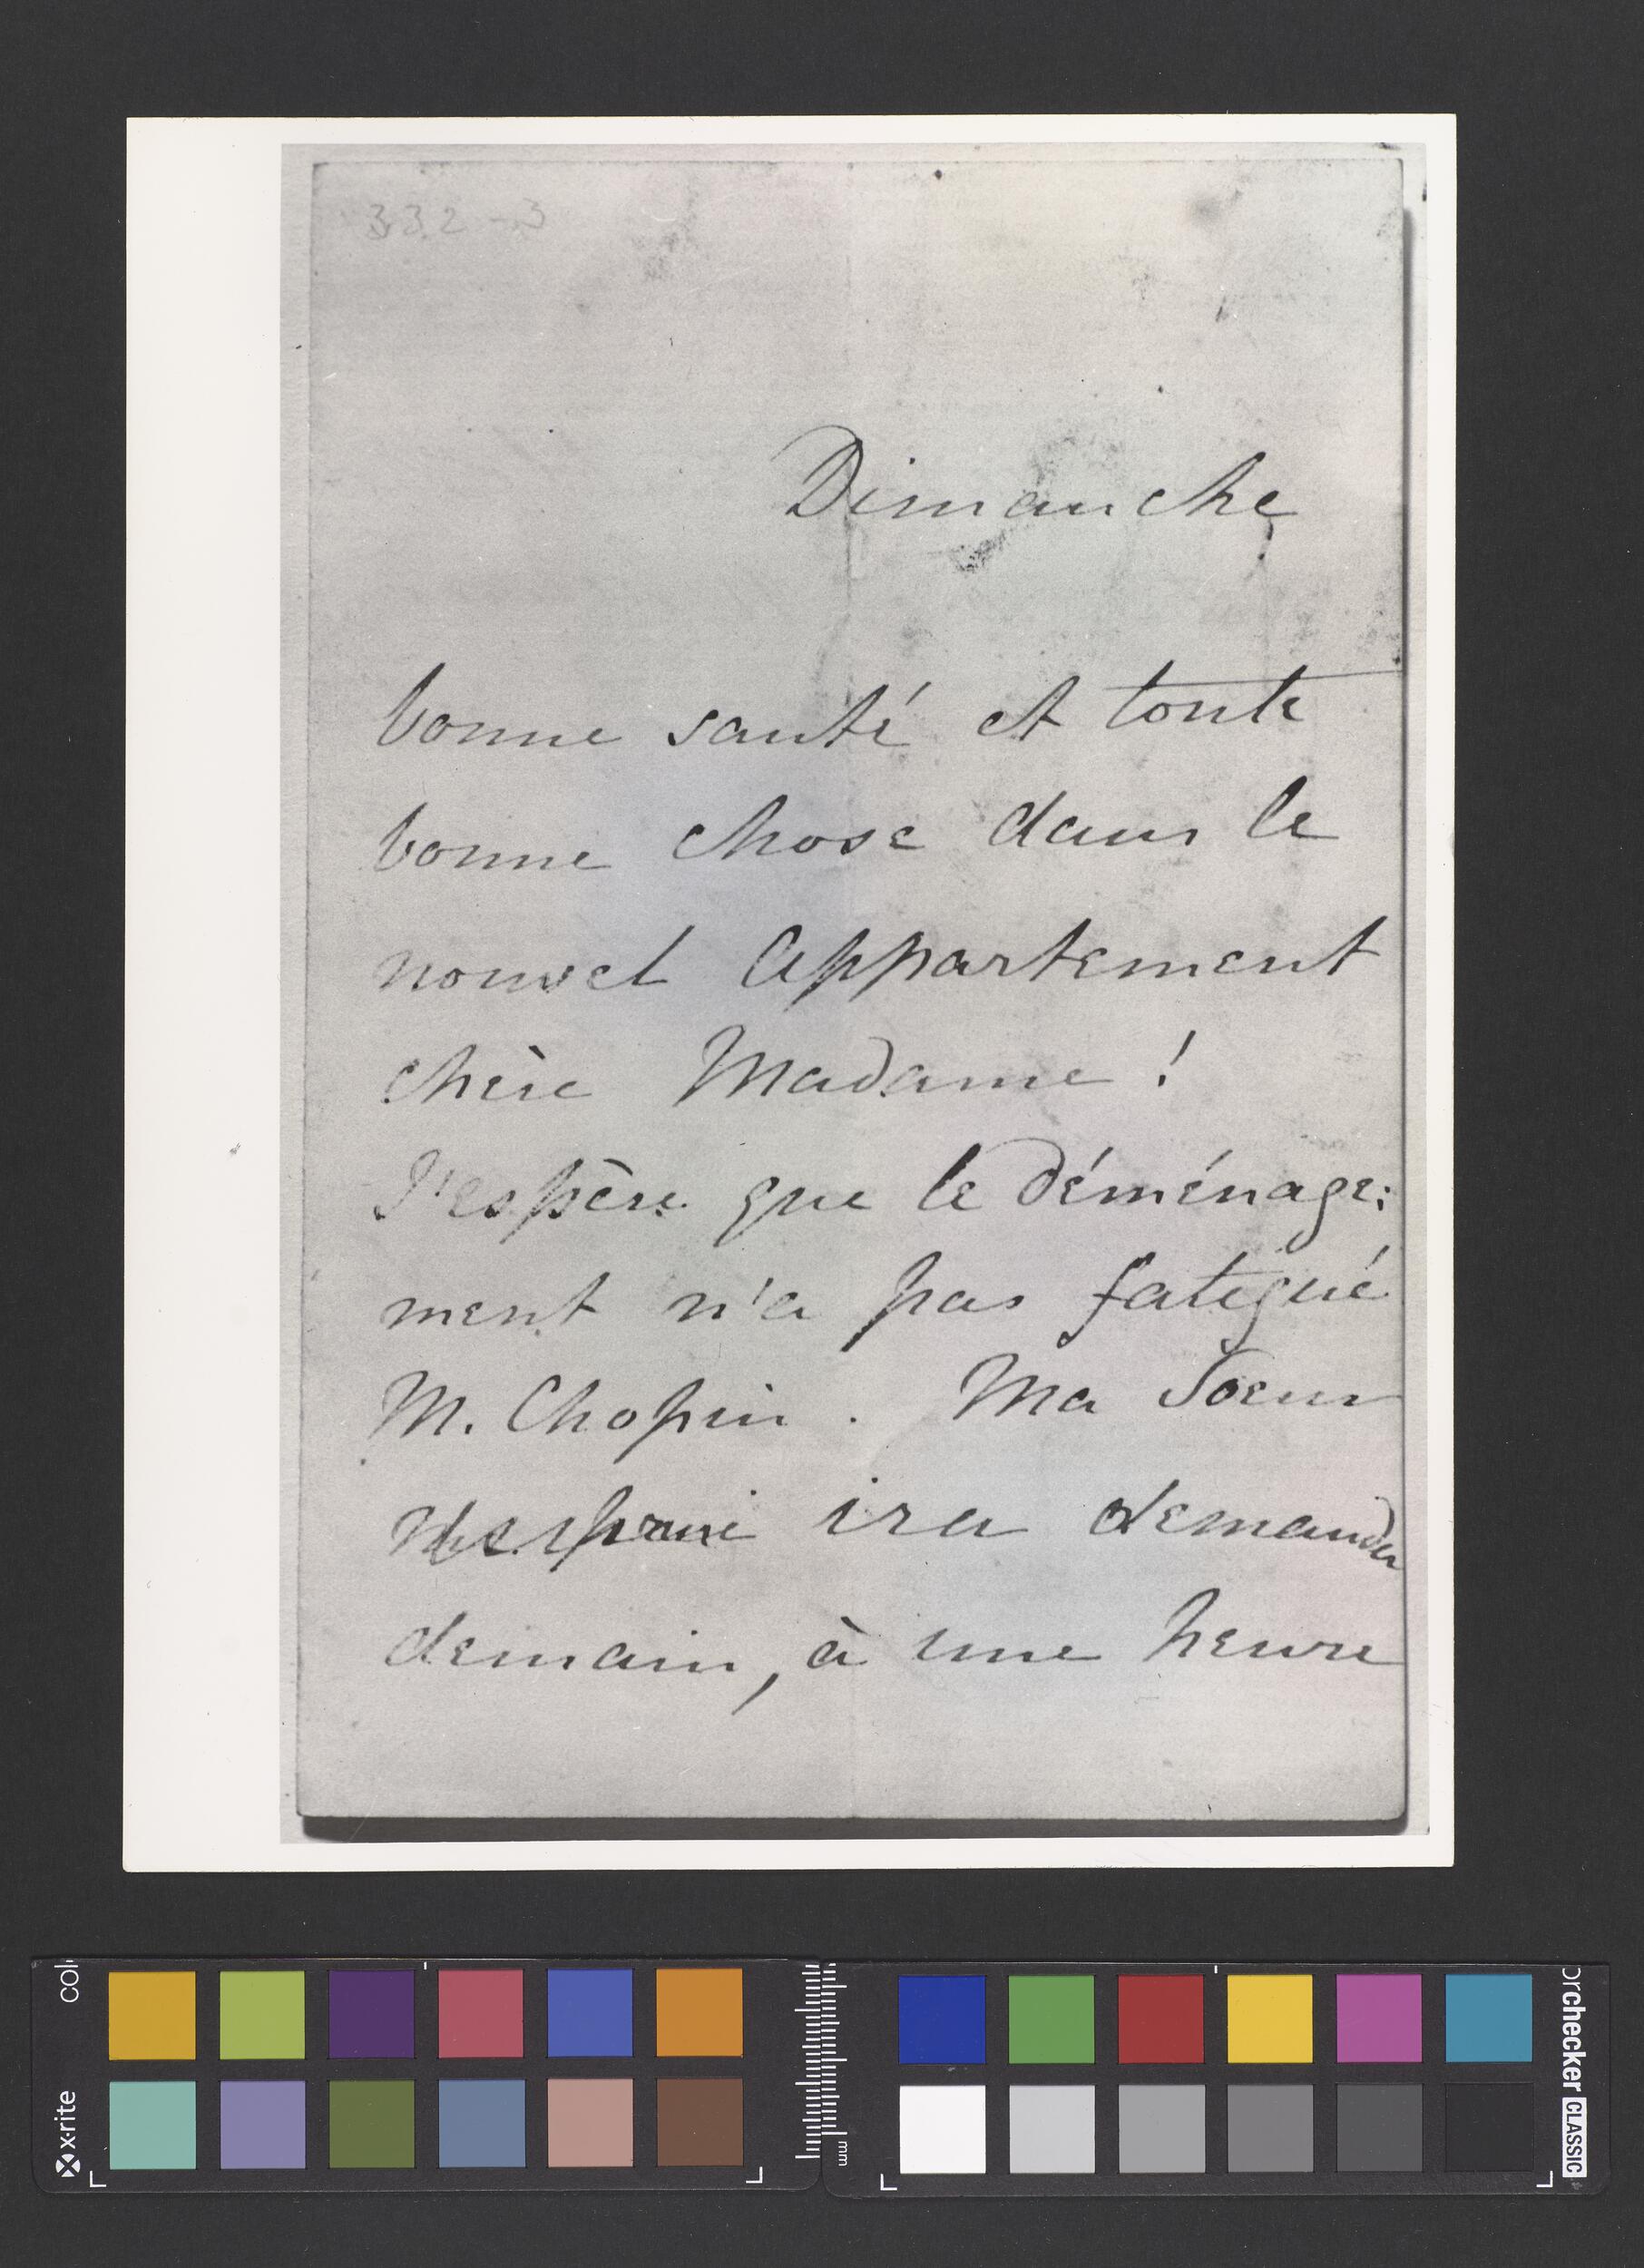 332-3
Dimanche
bonne santé et toute
bonne chose dans le
nouvel Appartement
chère Madame !
J'espère que le déménage:
ment n'a pas fatigué
M. Chopin . Ma Soeur
ira demander
demain, à une heure
x-rite
col
mm
orchecker CLASSIC